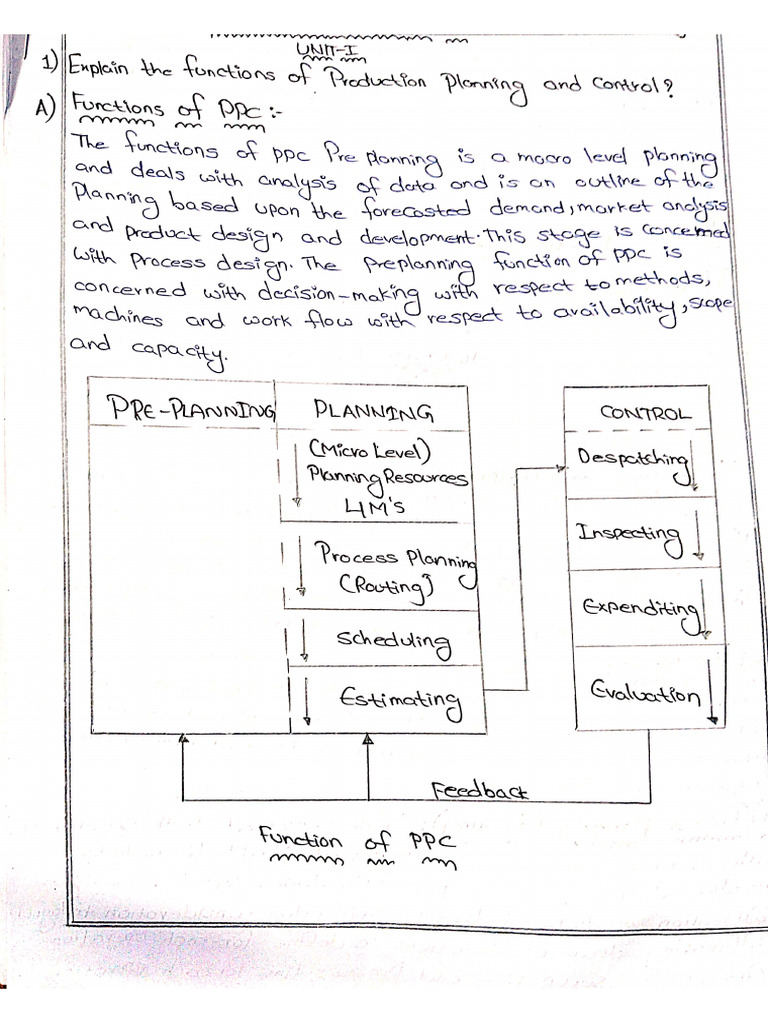 UNIT-I
1) Explain the functions of Production Planning and Control?
A) Functions of PPC:-
The functions of ppc Pre planning is a macro level planning
and deals with analysis of data and is an outline of the
Planning based upon the forecasted demand, market analysis
and product design and development. This stage is concerned
with Process design. The preplanning function of PPC is
concerned with decision-making with respect to methods,
machines and work flow with respect to availability, scope
and capacity.
PRE-PLANNING
PLANNING
(Micro Level)
Planning Resources
4M's
Process Planning
(Routing)
Scheduling
Estimating
CONTROL
Despatching
Inspecting
Expenditing
Evaluation
Feedback
Function of PPC